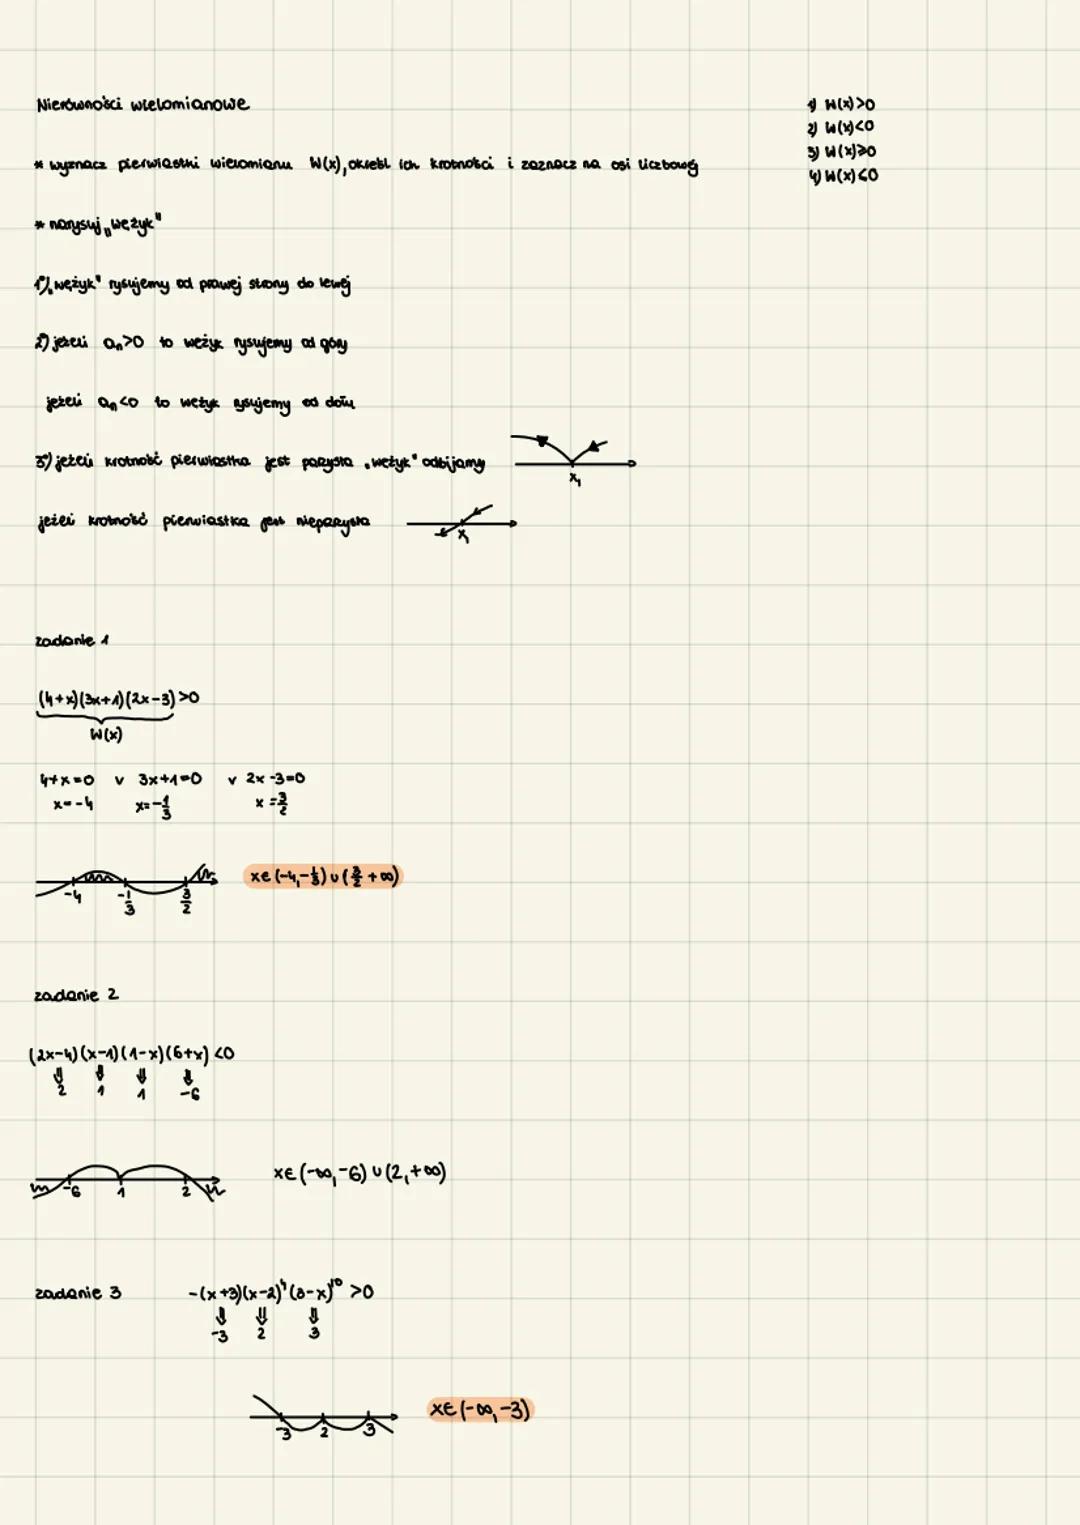 Nierówności wielomianowe
1) W(x)>0
2) W(x)<0
3) W(x)≥0
4) W(x)≤0
* wyznacz pierwiastki wielomianu W(x), określ ich krotności i zaznacz na osi liczbowej
* narysuj „wężyk"
1°) „wężyk" rysujemy od prawej strony do lewej
2°) jeżeli aₙ>0 to wężyk rysujemy od góry
jeżeli aₙ<0 to wężyk rysujemy od dołu
3°) jeżeli krotność pierwiastka jest parzysta „wężyk" odbijamy
x₁
jeżeli krotność pierwiastka jest nieparzysta
x₁
zadanie 1
(4+x)(3x+1)(2x-3)>0
W(x)
4+x=0 v 3x+1=0 v 2x-3=0
x=-4 x=-1/3 x=3/2
-4 -1/3 3/2
x∈(-4,-1/3)∪(3/2 +∞)
zadanie 2
(2x-4)(x-1)(1-x)(6+x)<0
⇓ ⇓ ⇓ ⇓
2 1 1 -6
-6 1 2
x∈(-∞,-6)∪(2,+∞)
zadanie 3 -(x+3)(x-2)⁴(3-x)¹⁰>0
⇓ ⇓ ⇓
-3 2 3
-3 2 3
x∈(-∞,-3)